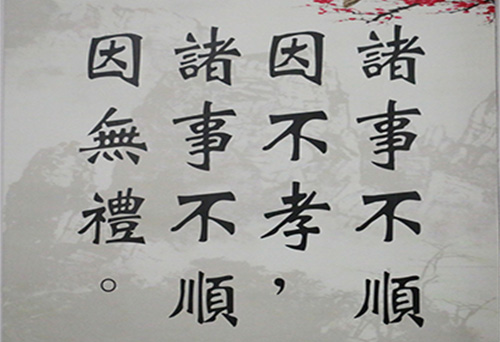 諸事不順
因不孝，
諸事不順
因無禮。